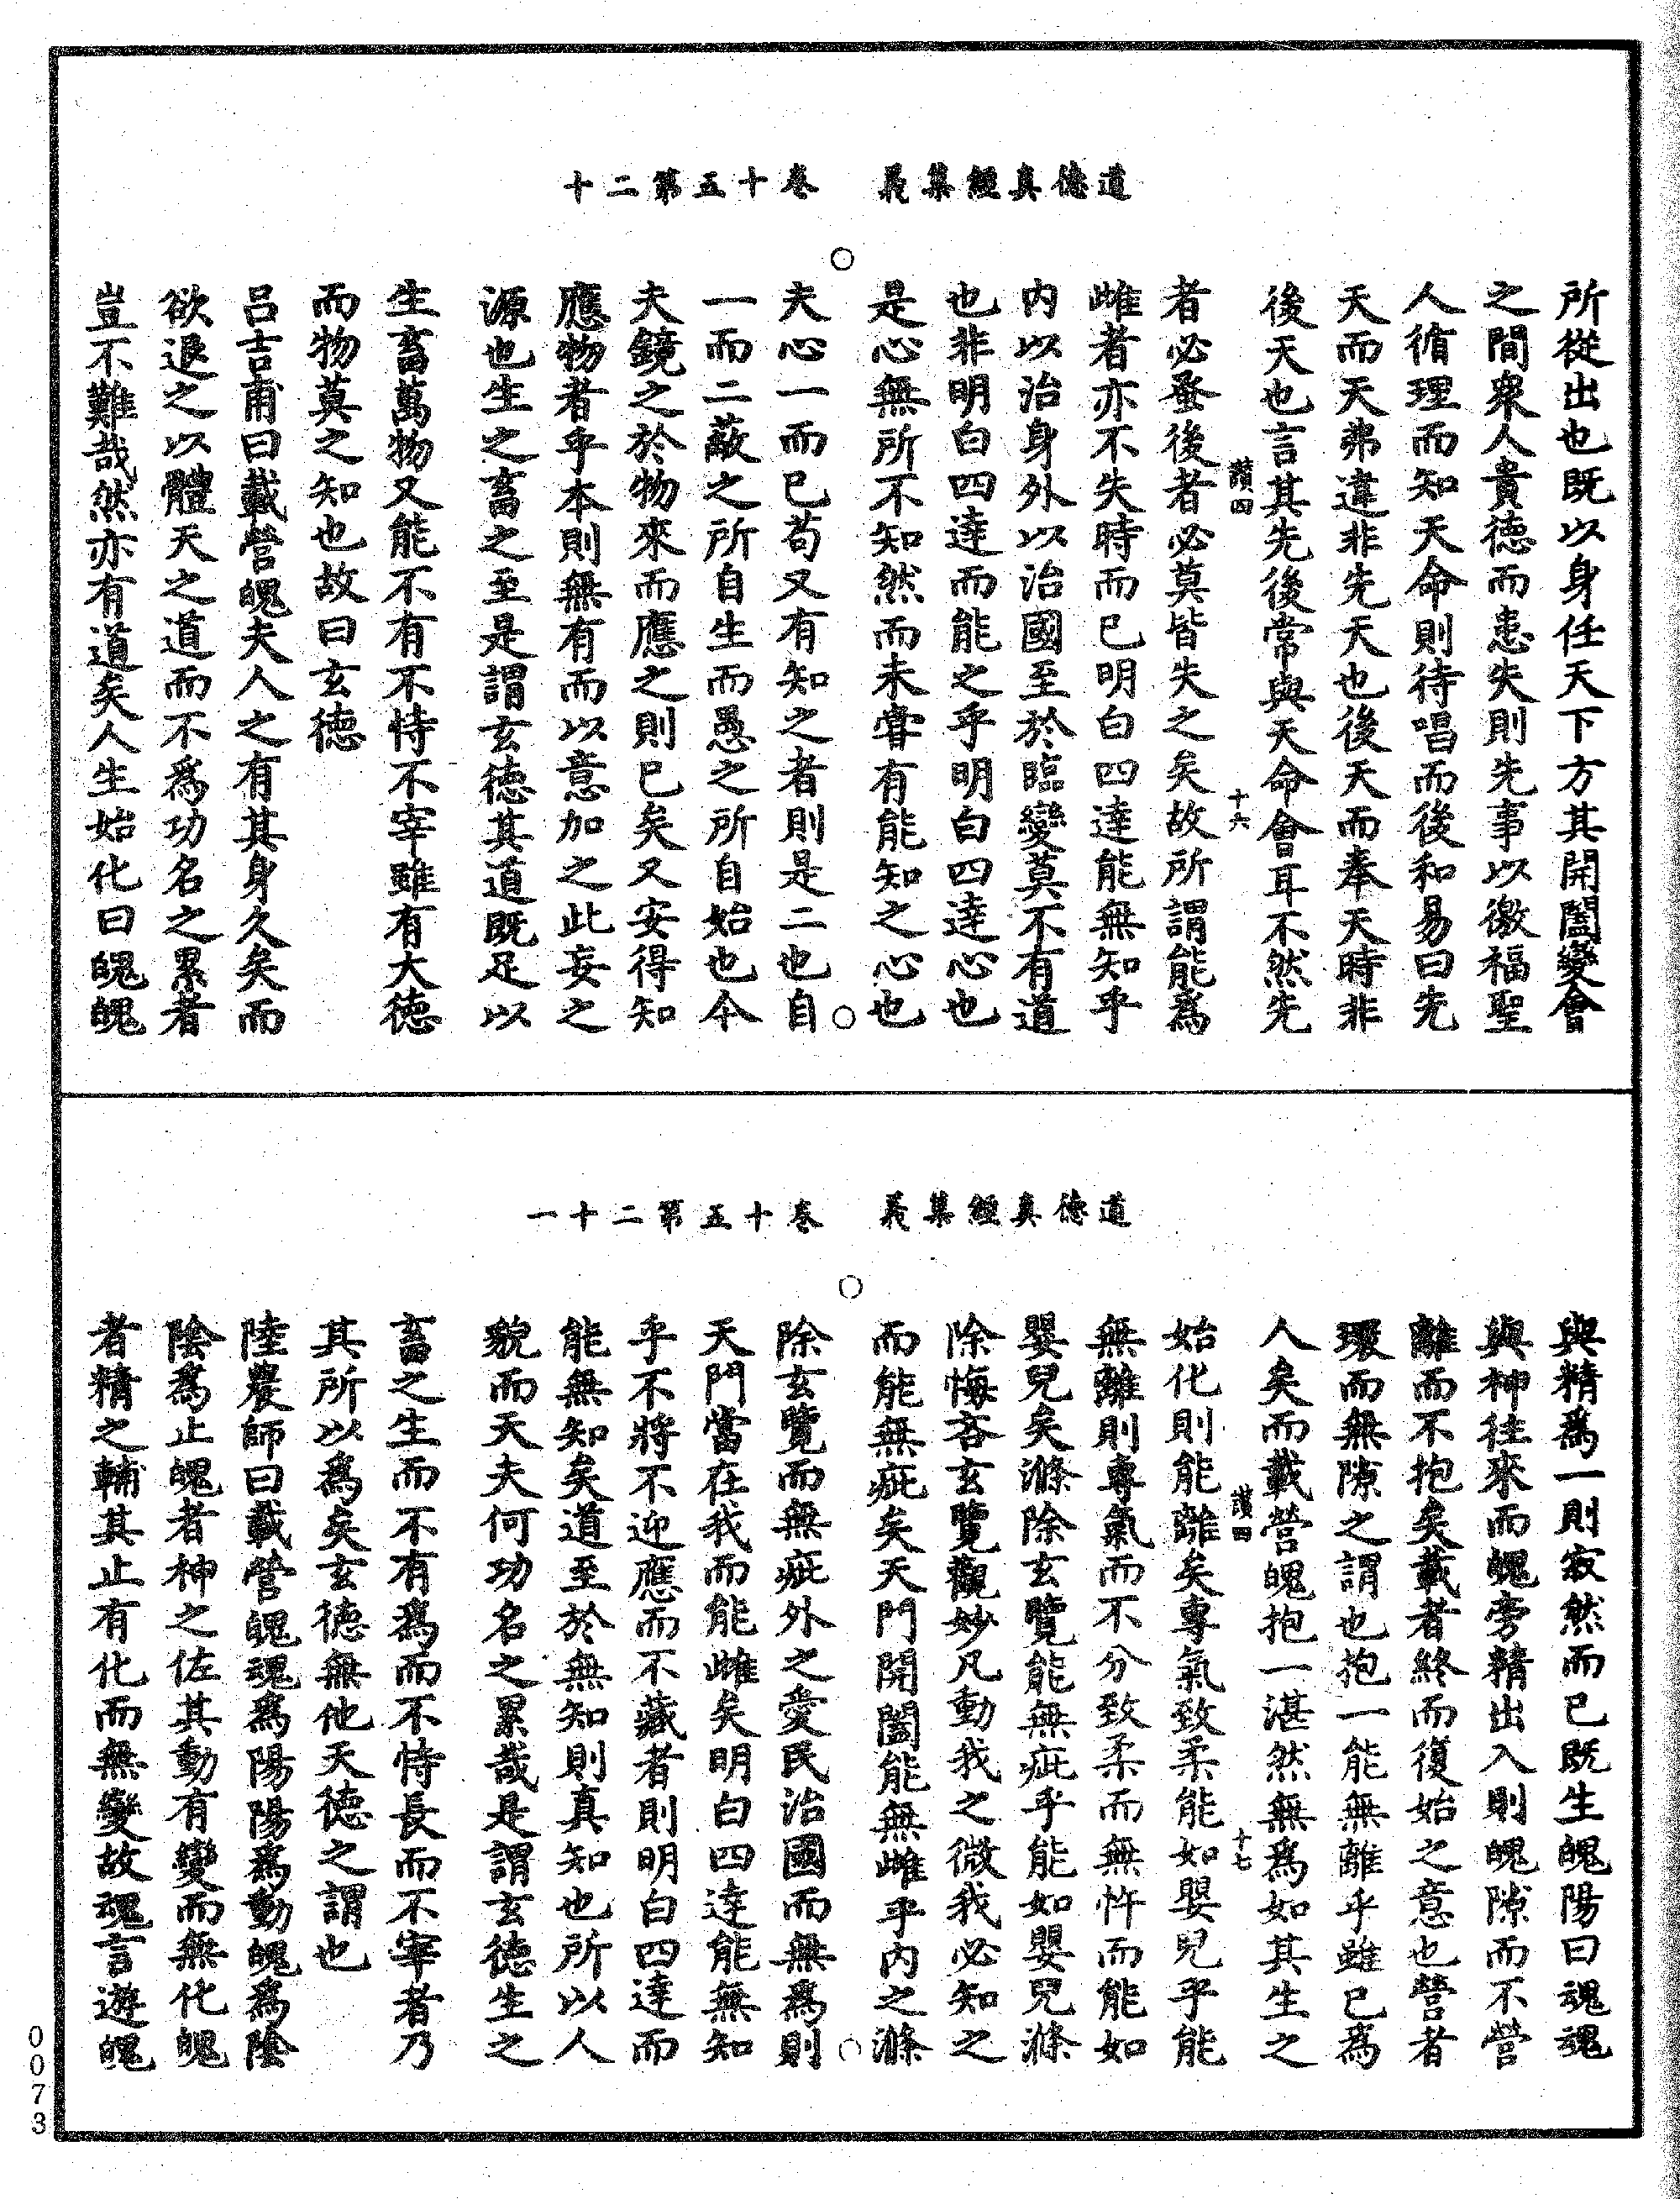 道德真經集義　卷十五第二十
所從出也既以身任天下方其開闔變會
之間衆人貴德而患失則先事以徼福聖
人循理而知天命則待唱而後和易曰先
天而天弗違非先天也後天而奉天時非
後天也言其先後常與天命會耳不然先
讃四　十六
者必蚤後者必莫皆失之矣故所謂能爲
雌者亦不失時而已明白四達能無知乎
内以治身外以治國至於臨變莫不有道
也非明白四達而能之乎明白四達心也
是心無所不知然而未甞有能知之心也
夫心一而已苟又有知之者則是二也自
一而二蔽之所自生而愚之所自始也今
夫鏡之於物來而應之則已矣又安得知
應物者乎本則無有而以意加之此妄之
源也生之畜之至是謂玄德其道既足以
生畜萬物又能不有不恃不宰雖有大德
而物莫之知也故曰玄德
吕吉甫曰載營魄夫人之有其身久矣而
欲退之以體天之道而不爲功名之累者
豈不難哉然亦有道矣人生始化曰魄魄
道德真經集義　卷十五第二十一
與精爲一則寂然而已既生魄陽曰魂魂
與神往來而魄旁精出入則魄隙而不營
離而不抱矣載者終而復始之意也營者
環而無隙之謂也抱一能無離乎雖已爲
人矣而載營魄抱一湛然無爲如其生之
讃四　十七
始化則能離矣專氣致柔能如嬰兒乎能
無離則專氣而不分致柔而無忤而能如
嬰兒矣滌除玄覽能無疵乎能如嬰兒滌
除悔吝玄覽觀妙凡動我之微我必知之
而能無疵矣天門開闔能無雌乎内之滌
除玄覽而無疵外之愛民治國而無爲則
天門當在我而能雌矣明白四達能無知
乎不將不迎應而不藏者則明白四達而
能無知矣道至於無知則真知也所以人
貌而天夫何功名之累哉是謂玄德生之
畜之生而不有爲而不恃長而不宰者乃
其所以爲矣玄德無他天德之謂也
陸農師曰載營魄魂爲陽陽爲動魄爲陰
陰爲止魄者神之佐其動有變而無化魄
者精之輔其止有化而無變故魂言遊魄
0073